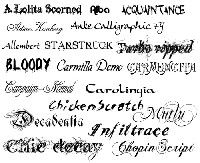 A Lolita Scorned Aboo ACQUAINTANCE
Anke Calligraphic
Allembert STARSTRUCK Turbo ripped
BLOODY Carmilla Demo CARMENCITA
Carolingia
ChickenScratch
Decadentia
Infiltrace
Chic decay Chopin Script